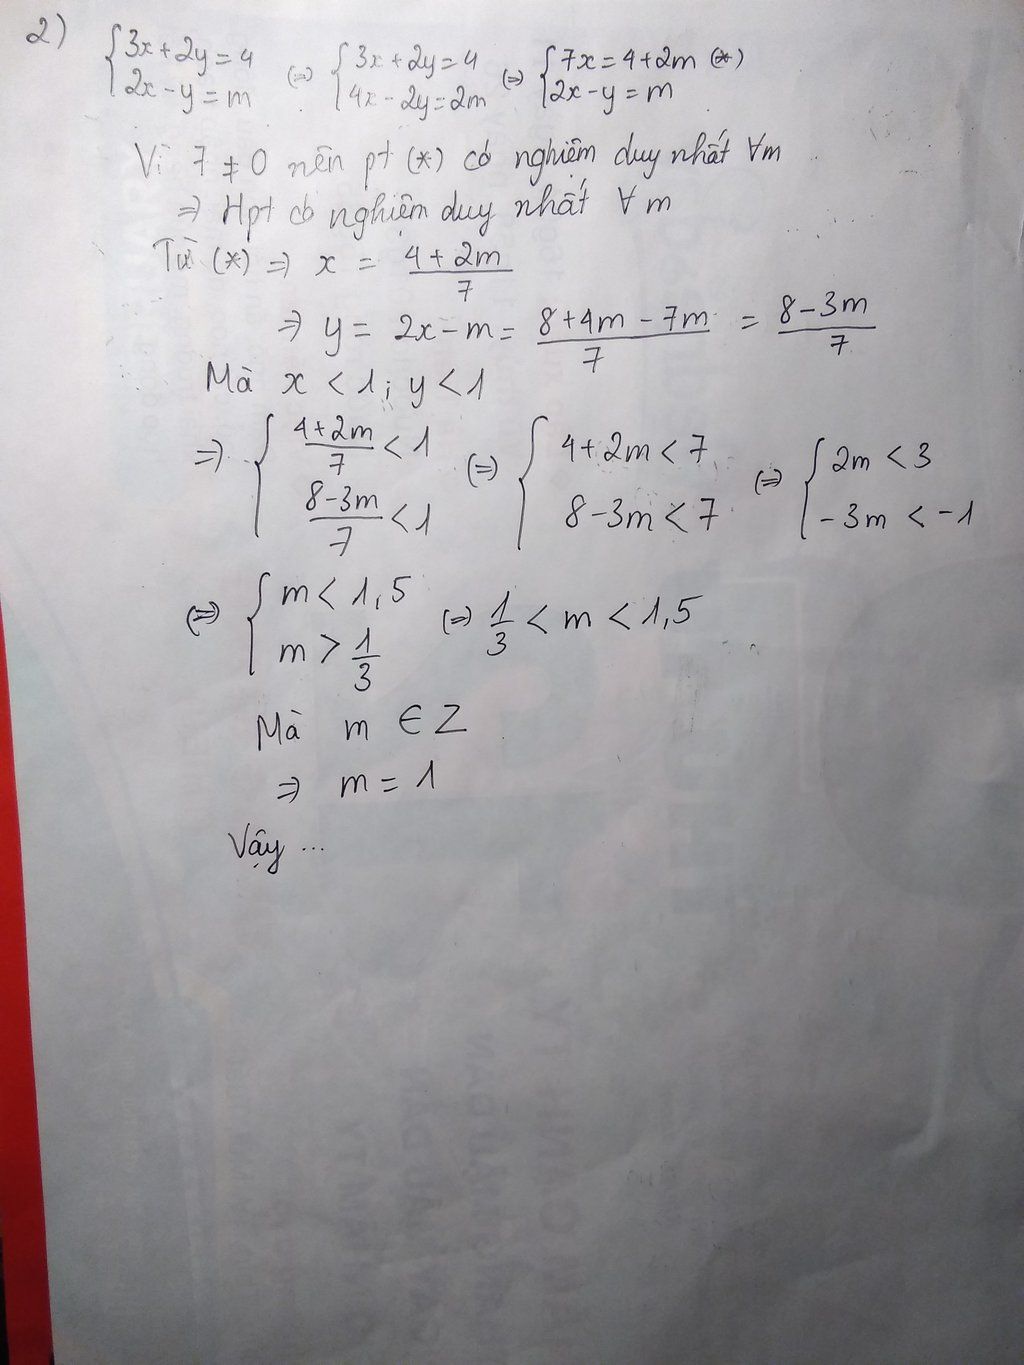 2) { 3x + 2y = 4 ; 2x - y = m (=) { 3x + 2y = 4 ; 4x - 2y = 2m (=) { 7x = 4 + 2m (*) ; 2x - y = m
Vì 7 ≠ 0 nên pt (*) có nghiệm duy nhất ∀m
=> Hpt có nghiệm duy nhất ∀ m
Từ (*) => x = (4 + 2m)/7
=> y = 2x - m = (8 + 4m - 7m)/7 = (8 - 3m)/7
Mà x < 1 ; y < 1
=> { (4 + 2m)/7 < 1 ; (8 - 3m)/7 < 1 (=) { 4 + 2m < 7 ; 8 - 3m < 7 (=) { 2m < 3 ; -3m < -1
(=) { m < 1,5 ; m > 1/3 (=) 1/3 < m < 1,5
Mà m ∈ Z
=> m = 1
Vậy ...